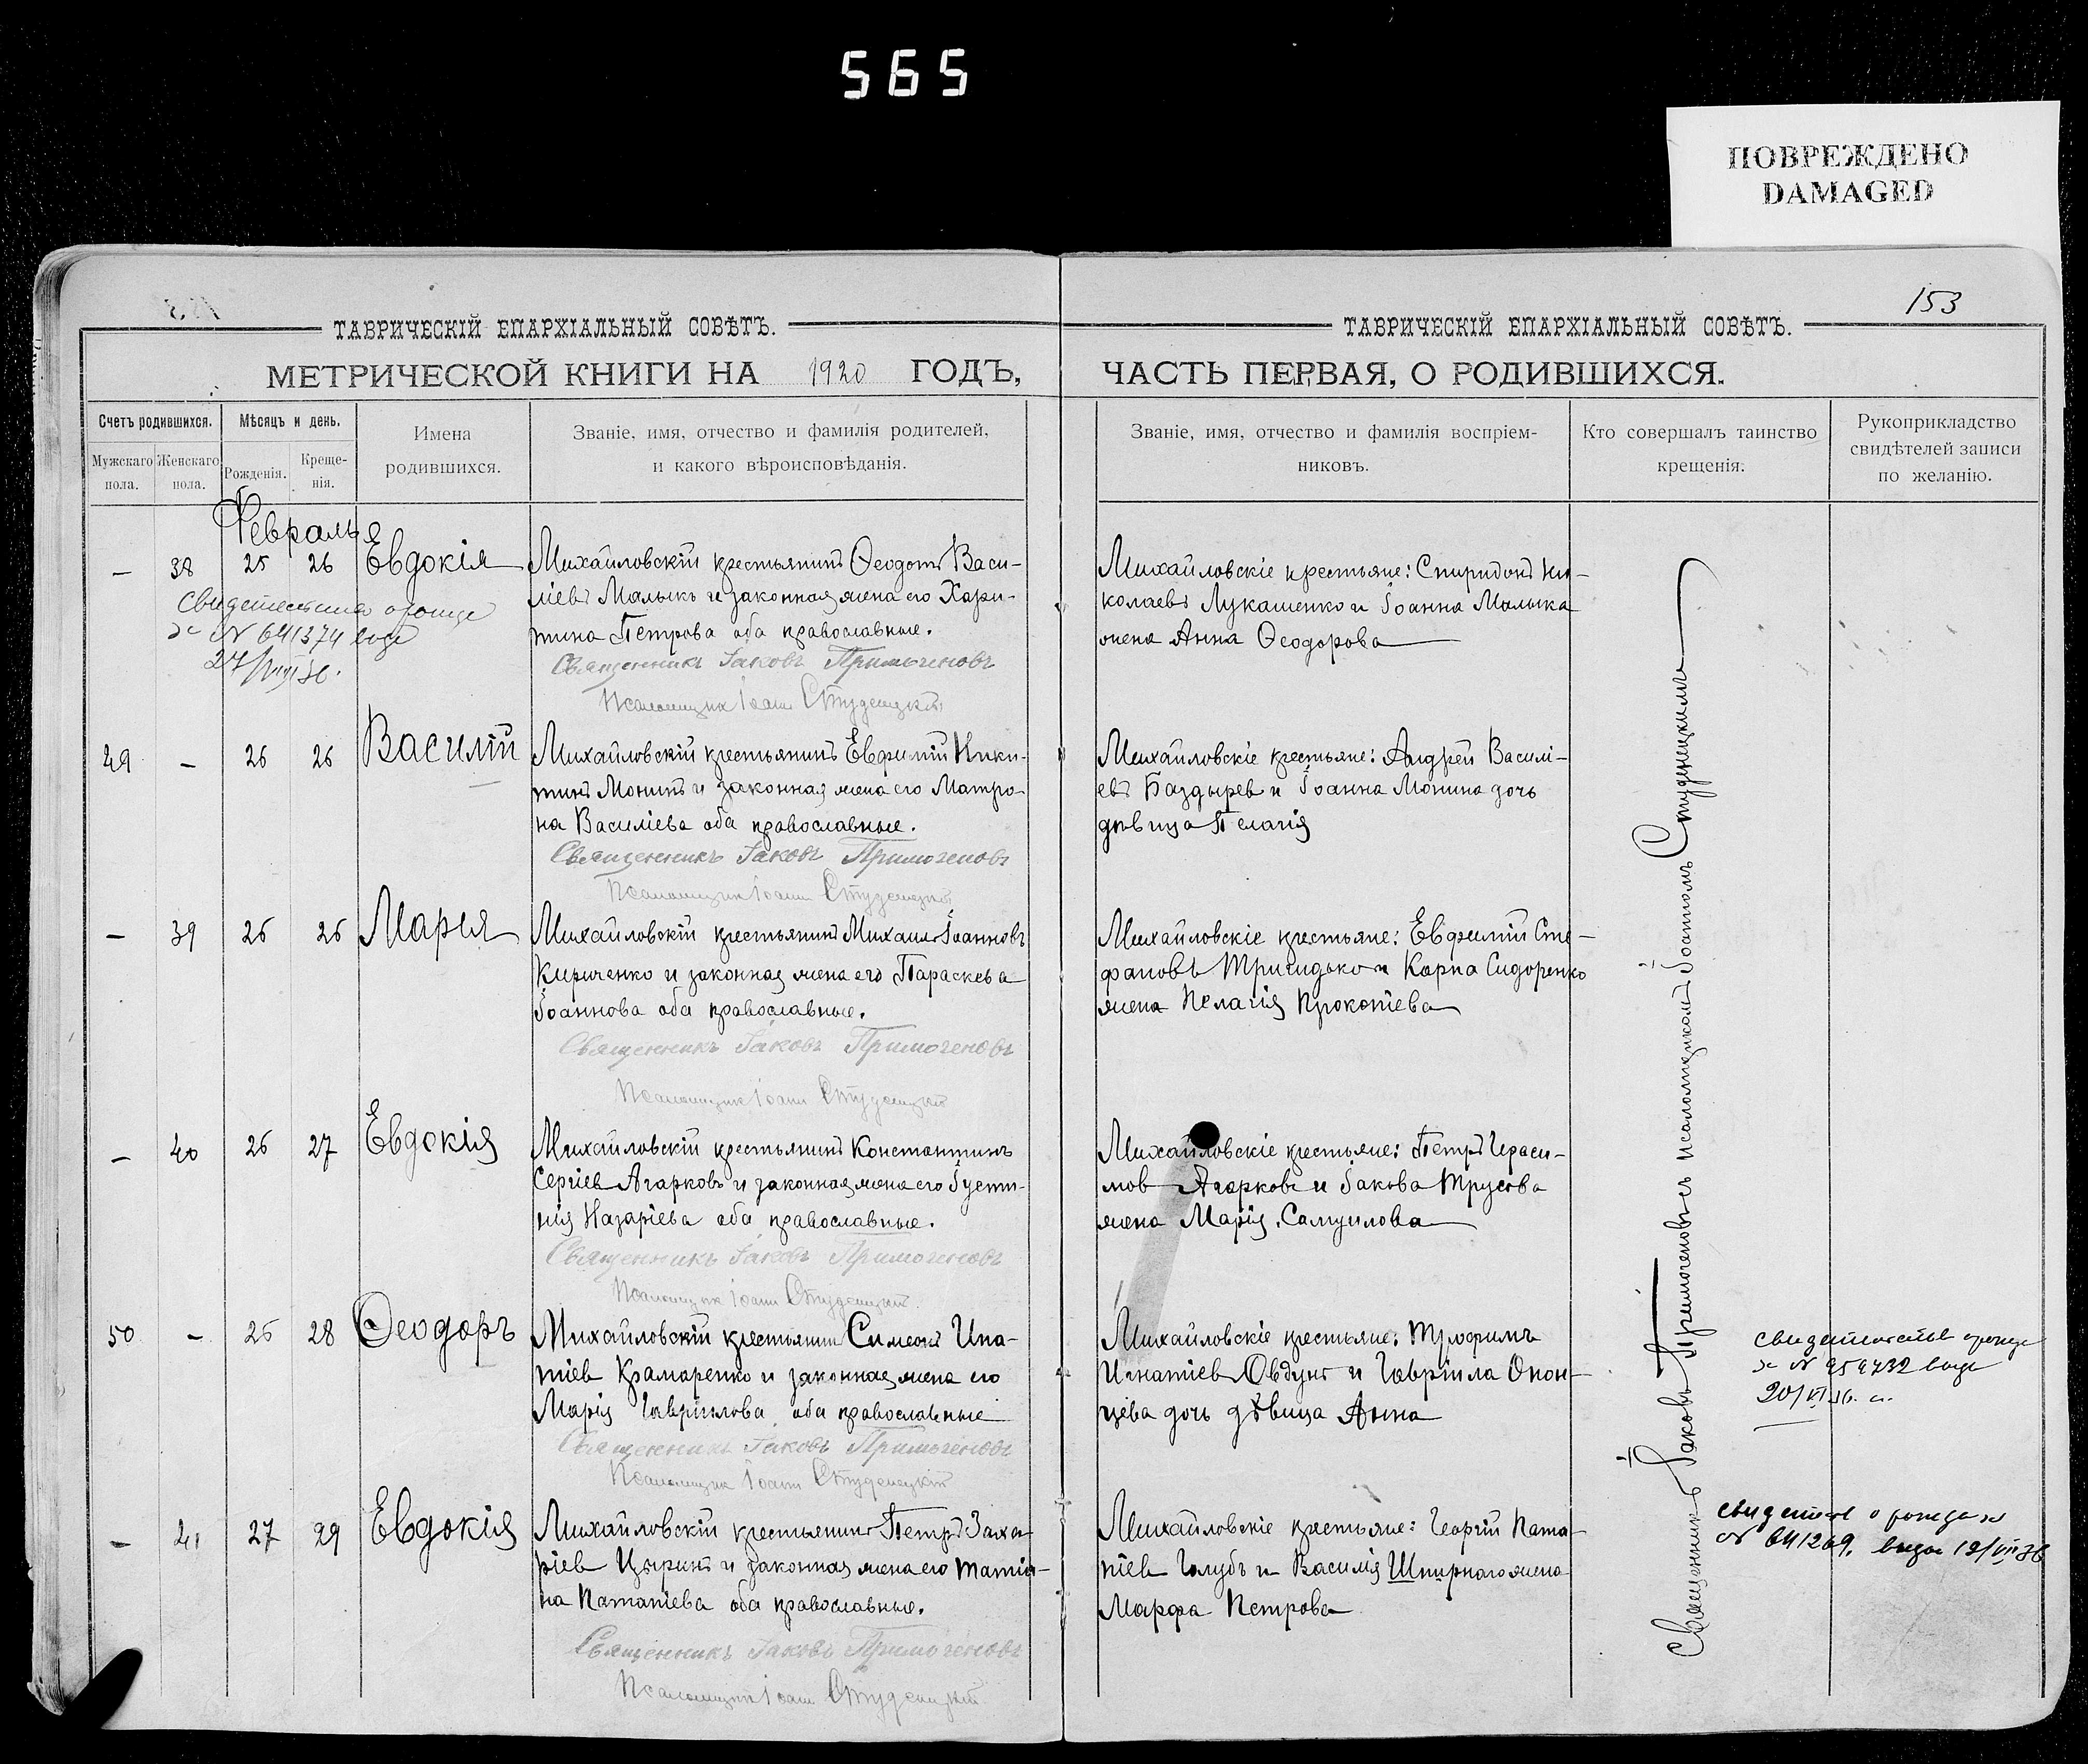 565
ПОВРЕЖДЕНО
DAMAGED
153
ТАВРИЧЕСКІЙ ЕПАРХІАЛЬНЫЙ СОВѢТЪ.
ТАВРИЧЕСКІЙ ЕПАРХІАЛЬНЫЙ СОВѢТЪ.
МЕТРИЧЕСКОЙ КНИГИ НА 1920 ГОДЪ,
ЧАСТЬ ПЕРВАЯ, О РОДИВШИХСЯ.
Счетъ родившихся.
Мужскаго пола.
Женскаго пола.
Мѣсяцъ и день.
Рожденія.
Креще-
нія.
Имена
родившихся.
Званіе, имя, отчество и фамилія родителей,
и какого вѣроисповѣданія.
Званіе, имя, отчество и фамилія воспріем-
никовъ.
Кто совершалъ таинство
крещенія.
Рукоприкладство
свидѣтелей записи
по желанію.
Февраль
– 38 25 26 Евдокія
Михайловскій крестьянинъ Ѳеодотъ Васи-
ліевъ Малыкъ и законная жена его Хари-
тина Петрова оба православные.
Священникъ Іаковъ Примоченовъ
Псаломщикъ Іоаннъ Студенецкій
Михайловскіе крестьяне: Спиридонъ Ни-
колаевъ Лукашенко и Іоанна Малыка
жена Анна Ѳеодорова
№ 641374
27/VIII 36.
49 – 26 26 Василій
Михайловскій крестьянинъ Евфимій Ники-
тинъ Монинъ и законная жена его Матро-
на Василіева оба православные.
Священникъ Іаковъ Примоченовъ
Псаломщикъ Іоаннъ Студенецкій
Михайловскіе крестьяне: Андрей Василі-
евъ Баздырев и Іоанна Монина дочь
дѣвица Пелагія
– 39 26 26 Марія
Михайловскій крестьянинъ Михаил Іоанновъ
Кириченко и законная жена его Параскева
Іоаннова оба православные.
Священникъ Іаковъ Примоченовъ
Псаломщикъ Іоаннъ Студенецкій
Михайловскіе крестьяне: Евфимій Сте-
фановъ Тригидько и Карпа Сидоренко
жена Пелагія Прокопіева
– 40 26 27 Евдокія
Михайловскій крестьянинъ Константинъ
Сергіев Агарковъ и законная жена его Іусти-
нія Назаріева оба православные.
Священникъ Іаковъ Примоченовъ
Псаломщикъ Іоаннъ Студенецкій
Михайловскіе крестьяне: Петръ Гераси-
мов Агарков и Іакова Трусова
жена Марія Самуилова
50 – 26 28 Ѳеодоръ
Михайловскій крестьянин Симеонъ Ипа-
тіев Крамаренко и законная жена его
Марія Гавріилова оба православные
Священникъ Іаковъ Примоченовъ
Псаломщикъ Іоаннъ Студенецкій
Михайловскіе крестьяне: Трофимъ
Игнатіев Овдунъ и Гавріила Онон-
цева дочь дѣвица Анна
20/VI 36. г.
– 41 27 29 Евдокія
Михайловскій крестьянинъ Петръ Заха-
ріев Цыринъ и законная жена его Татія-
на Ипатіева оба православные.
Священникъ Іаковъ Примоченовъ
Псаломщикъ Іоаннъ Студенецкій
Михайловскіе крестьяне: Георгій Ипа-
тіев Голубъ и Василія Шпирнаго жена
Марфа Петрова
№ 641269. 19/VII 36
Священникъ Іаковъ Примоченовъ съ псаломщикомъ Іоанномъ Студенецкимъ